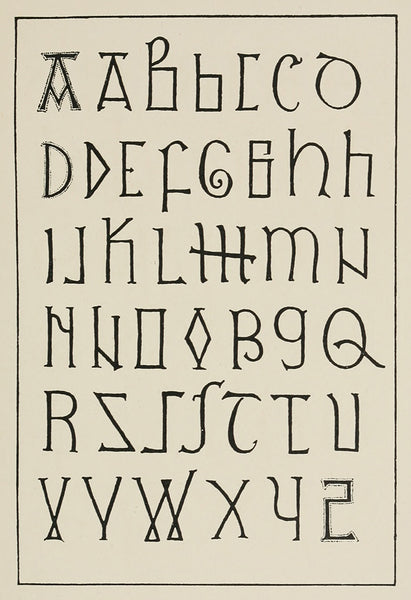 A A B b C C D
D D E F G G h h
I J K L M m N
N N O O P q Q
R S S S T T U
V V W X Y Z